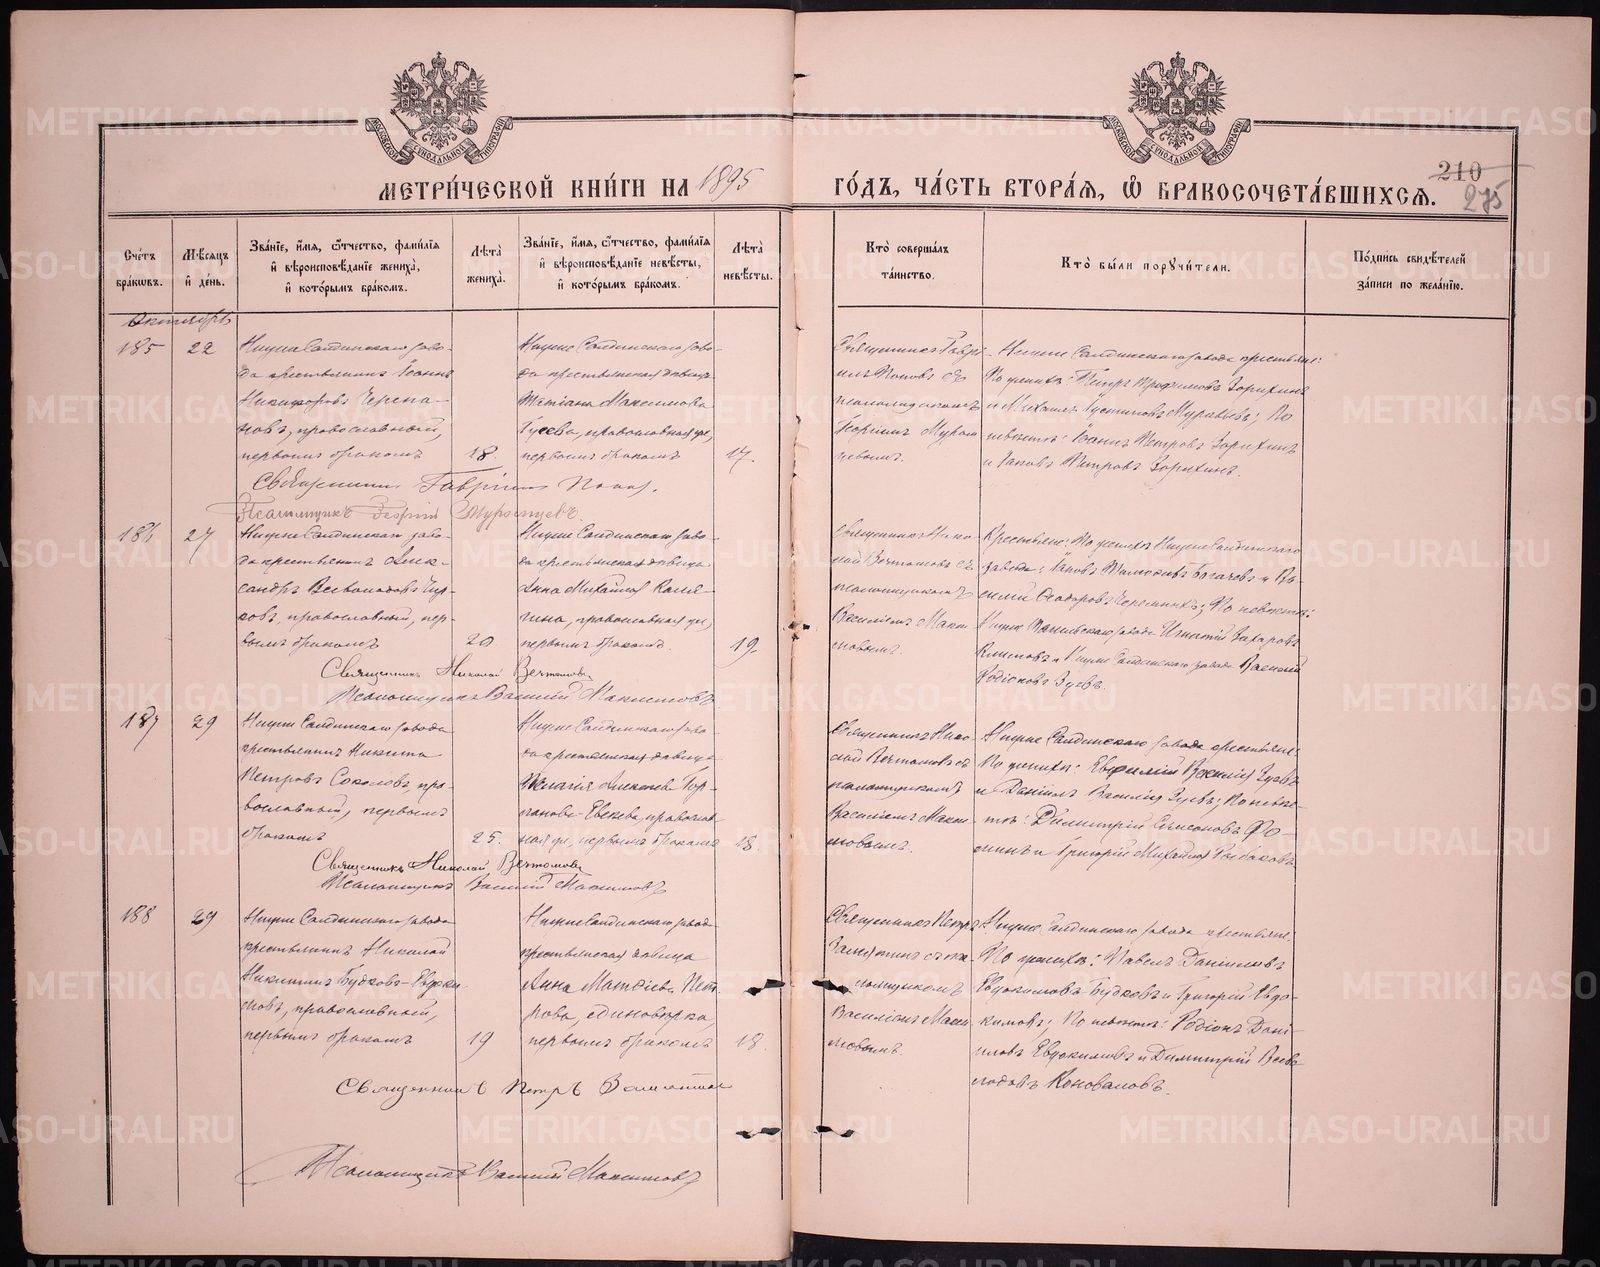 МОСКОВСКОЙ СѴНОДАЛЬНОЙ ТИПОГРАФІИ
МОСКОВСКОЙ СѴНОДАЛЬНОЙ ТИПОГРАФІИ
МЕТРИ́ЧЕСКОЙ КНИ́ГИ НА 1895
ГО́ДЪ, ЧА́СТЬ ВТОРА́Я, Ѿ БРАКОСОЧЕТА́ВШИХСЯ.
210
275
Сче́тъ бра́кωвъ.
Мѣ́сяцъ и҆ де́нь.
Зва́нїе, и҆́мя, ѻ҆́тчество, фами́лїя и҆ вѣроисповѣ́данїе жениха̀, и҆ кото́рымъ бра́комъ.
Лѣта̀ жениха̀.
Зва́нїе, и҆́мя, ѻ҆́тчество, фами́лїя и҆ вѣроисповѣ́данїе невѣ́сты, и҆ кото́рымъ бра́комъ.
Лѣта̀ невѣ́сты.
Кто̀ соверша́лъ та́инство.
Кто̀ бы́ли порꙋчи́тели.
По́дпись свидѣ́телей за́писи по жела́нїю.
Октябрь
185
22
Нижне Салдинскаго заво-
да крестьянинъ Іоаннъ
Никифоровъ Черепа-
новъ, православный,
первымъ бракомъ
18.
Нижне Салдинскаго заво-
да крестьянская девица
Татіана Максимова
Гусева, православная,
первымъ бракомъ
17.
Священникъ Гаврі-
илъ Поповъ съ
псаломщикомъ
Георгіемъ
Нижне Салдинскаго завода крестьяне:
По женихѣ: Петръ Трофимовъ Зорихинъ
и Михаилъ Муравьевъ; По
невѣстѣ: Іоаннъ Петровъ Зорихинъ
и Іаковъ Петровъ Зорихинъ.
Священникъ Гавріилъ Поповъ.
Псаломщикъ Георгій
186
27
Нижне Салдинскаго заво-
да крестьянинъ Алек-
сандръ Всеволодовъ
православный, пер-
вымъ бракомъ
20
Нижне Салдинскаго заво-
да крестьянская девица
Анна Михайлова
православная,
первымъ бракомъ.
19.
Священникъ Нико-
лай Вечтомовъ съ
псаломщикомъ
Василіемъ Макси-
мовымъ.
Крестьяне: По женихѣ Нижне Салдинскаго
завода: Іаковъ Тимофеевъ Богачовъ и Ва-
силій Ѳеодоровъ Черемныхъ; По невѣстѣ:
завода Игнатій Захаровъ
Климовъ и Нижне Салдинскаго завода Василій
Родіоновъ Зуевъ.
Священникъ Николай Вечтомовъ
Псаломщикъ Василій Максимовъ
187
29
Нижне Салдинскаго завода
крестьянинъ Никита
Петровъ Соколовъ, пра-
вославный, первымъ
бракомъ
25.
Нижне Салдинскаго заво-
да крестьянская девица
Пелагія Алексѣева Гор-
православ-
ная, первымъ бракомъ
18
Священникъ Нико-
лай Вечтомовъ съ
псаломщикомъ
Василіемъ Макси-
мовымъ.
Нижне Салдинскаго завода крестьяне:
По женихѣ: Евфимій Зуевъ
и Даніилъ Зуевъ; По невѣ-
стѣ: Димитрій Симеоновъ Фо-
минъ и Григорій Михайловъ Рыбаковъ
Священникъ Николай Вечтомовъ
Псаломщикъ Василій Максимовъ
188
29
Нижне Салдинскаго завода
крестьянинъ Николай
Никитинъ Будковъ-Евдоки-
мовъ, православный,
первымъ бракомъ
19
Нижне Салдинскаго завода
крестьянская девица
Анна Матѳіева Пет-
рова, единовѣрка,
первымъ бракомъ
18.
Священникъ Петръ
Замятинъ съ пса-
ломщикомъ
Василіемъ Макси-
мовымъ.
Нижне Салдинскаго завода крестьяне.
По женихѣ: Павелъ Даніиловъ
Евдокимовъ Будковъ и Григорій Евдо-
кимовъ; По невѣстѣ: Родіонъ Дані-
иловъ Евдокимовъ и Димитрій Всево-
лодовъ Коноваловъ.
Священникъ Петръ Замятинъ
Псаломщикъ Василій Максимовъ
METRIKI.GASO-URAL.RU